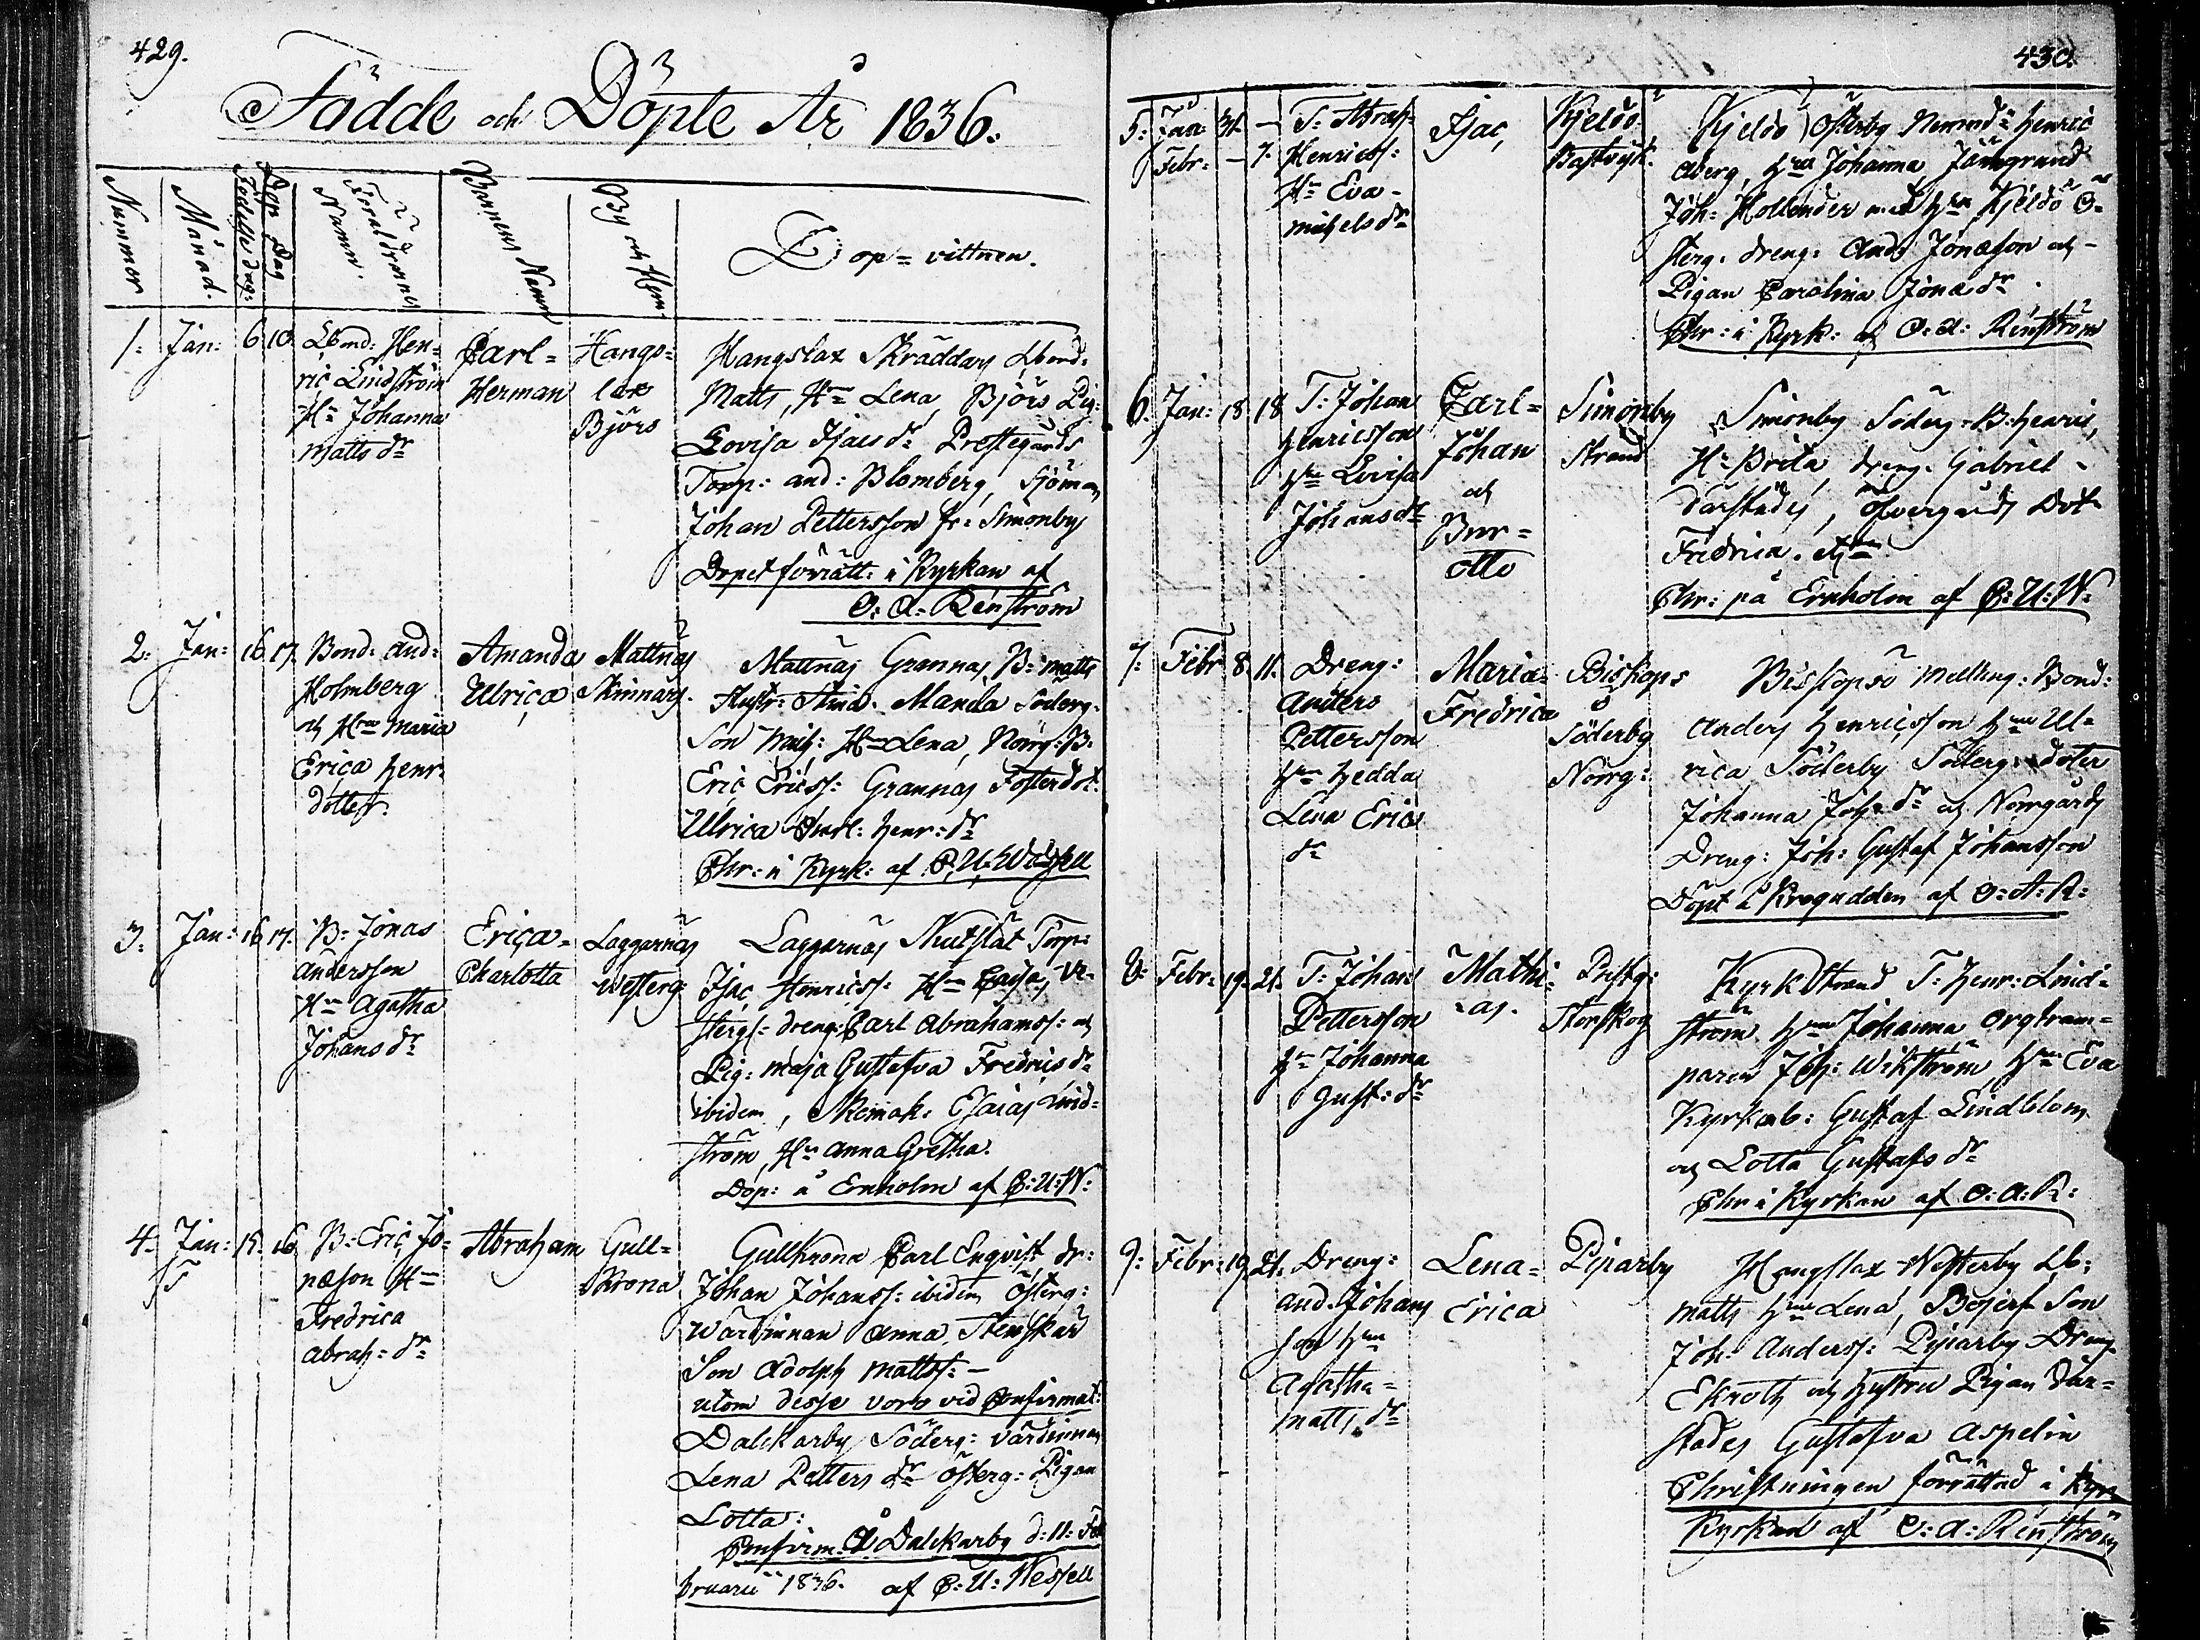 429.
Födde och Döpte År 1836.
Nummer
Månad.
Födelse dag:
Dop Dag
Föräldrarnes Namn.
Barnens Namn
By och Hem
Dop=vittnen.
1: Jan: 6 10 Lbond: Hen=
ric Lindström
Hu Johanna
Matts dr
Carl=
Herman
Hangs=
lax
Björs
Hangslax Skräddars Lbond:
Matts, Hu Lena, Björs Pig:
Lovisa Isacs dr Prestegårds
Torp: And: Blomberg, Sjöman
Johan Pettersson fr: Simonby
Dopet förrätt: i Kyrkan af
O: A: Renström
2: Jan: 16 17. Bond: And:
Holmberg
och Hru Maria
Erica Henr:
dotter.
Amanda
Ulrica
Mattnäs
Skinnars.
Mattnäs Grannas B: Matts
Hustr: Stina. Manda Söderg:
Son Mich: Hu Lena, Norrg: B:
Eric Ericss: Grannas Fosterdot:
Ulrica Carl: Henr: dr
Chr: i Kyrk: af C: U: Wessell
3: Jan: 16 17. B: Jonas
Andersson
Hu Agatha
Johans dr
Erica=
Charlotta
Laggarnäs
Westerg
Laggarnäs Skutslät Torp:
Isac Henricss: Hu Cajsa, We=
stergs: dreng: Carl Abrahamss: och
Pig: Maja Gustafva Fredrics dr
ibidem, Skomak: Esaias Lind=
ström, Hu Anna Gretha.
Dop: å Ernholm af C: U: W:
4: Jan: 15. 16 B: Eric Jo=
næson Hu
Fredrica
Abrah: dr
Abraham
Gull=
Krona
Gullkrona Carl Enqvist, dr:
Johan Johanss: ibidem Österg:
Wärdinnan Anna, Stenskär
Son Adolph Mattss: —
utom desse voro vid Confirmat:
Dalckarby Söderg: Värdinnan
Lena Petters dr Österg: Pigan
Lotta:
Confirm: å Dalckarby d: 11: Fe
bruarii 1836. af C: U: Wessell
430.
5: Jan: 31. —
Febr: — 7.
T: Abrah:
Henricss:
Hu Eva
Michels dr
Isac,
Kjeldö
Bastvik:
Kjeldö Österby Nemnd: Henric
Åberg, Hru Johanna, Järngrund
Joh: Hollender med Hru Kjeldö Ö=
sterg: dreng: Ands Jonæson och
Pigan Carolina Jonæ dr
Chr: i Kyrk: af O: A: Renström
6: Jan: 18 18 T: Johan
Henricsson
Hru Lovisa
Johans dr
Carl=
Johan
och
Bror=
Otto
Simonby
Strand
Simonby Söderg: B: Henric,
Hu Brita, dreng: Gabriel
därstädes, Öfvergårds Dot:
Fredrica.
Chr: på Ernholm af C: U: W:
7: Febr 8 11. Dreng:
Anders
Pettersson
Hru Hedda
Lena Erics
dr
Maria=
Fredrica
Biskops
ö
Söderby
Norrg:
Biskopsö Mellbng: Bond:
Anders Henricsson Hru Ul=
rica Söderby Söderg: doter
Johanna Joh: dr och Norrgårds
Dreng: Joh: Gustaf Johansson
Döpt å Krogudden af O: A: R:
8: Febr: 19. 21. T: Johan
Pettersson
Hu Johanna
Gust: dr
Mathi=
as.
Prestg:
Storskog
KyrkStrand T: Henr: Lind=
ström, Hru Johanna Orgtram=
paren Joh: Wikström, Hru Eva
Kyrkob: Gustaf Lindblom
och Lotta Gustafs dr
Chr i Kyrkan af O: A: R:
9: Febr: 19 21. Dreng:
And: Johans
son Hru
Agatha=
Matts dr
Lena=
Erica
Piparby
Hangslax Westerby Lb:
Matts Hru Lena, Bojers Son
Joh: Anderss: Piparby Dreng
Ekroth och Hustru Pigan där=
städes Gustafva Aspelin
Christningen förrättad i Kyr
Kyrkan af O: A: Renström